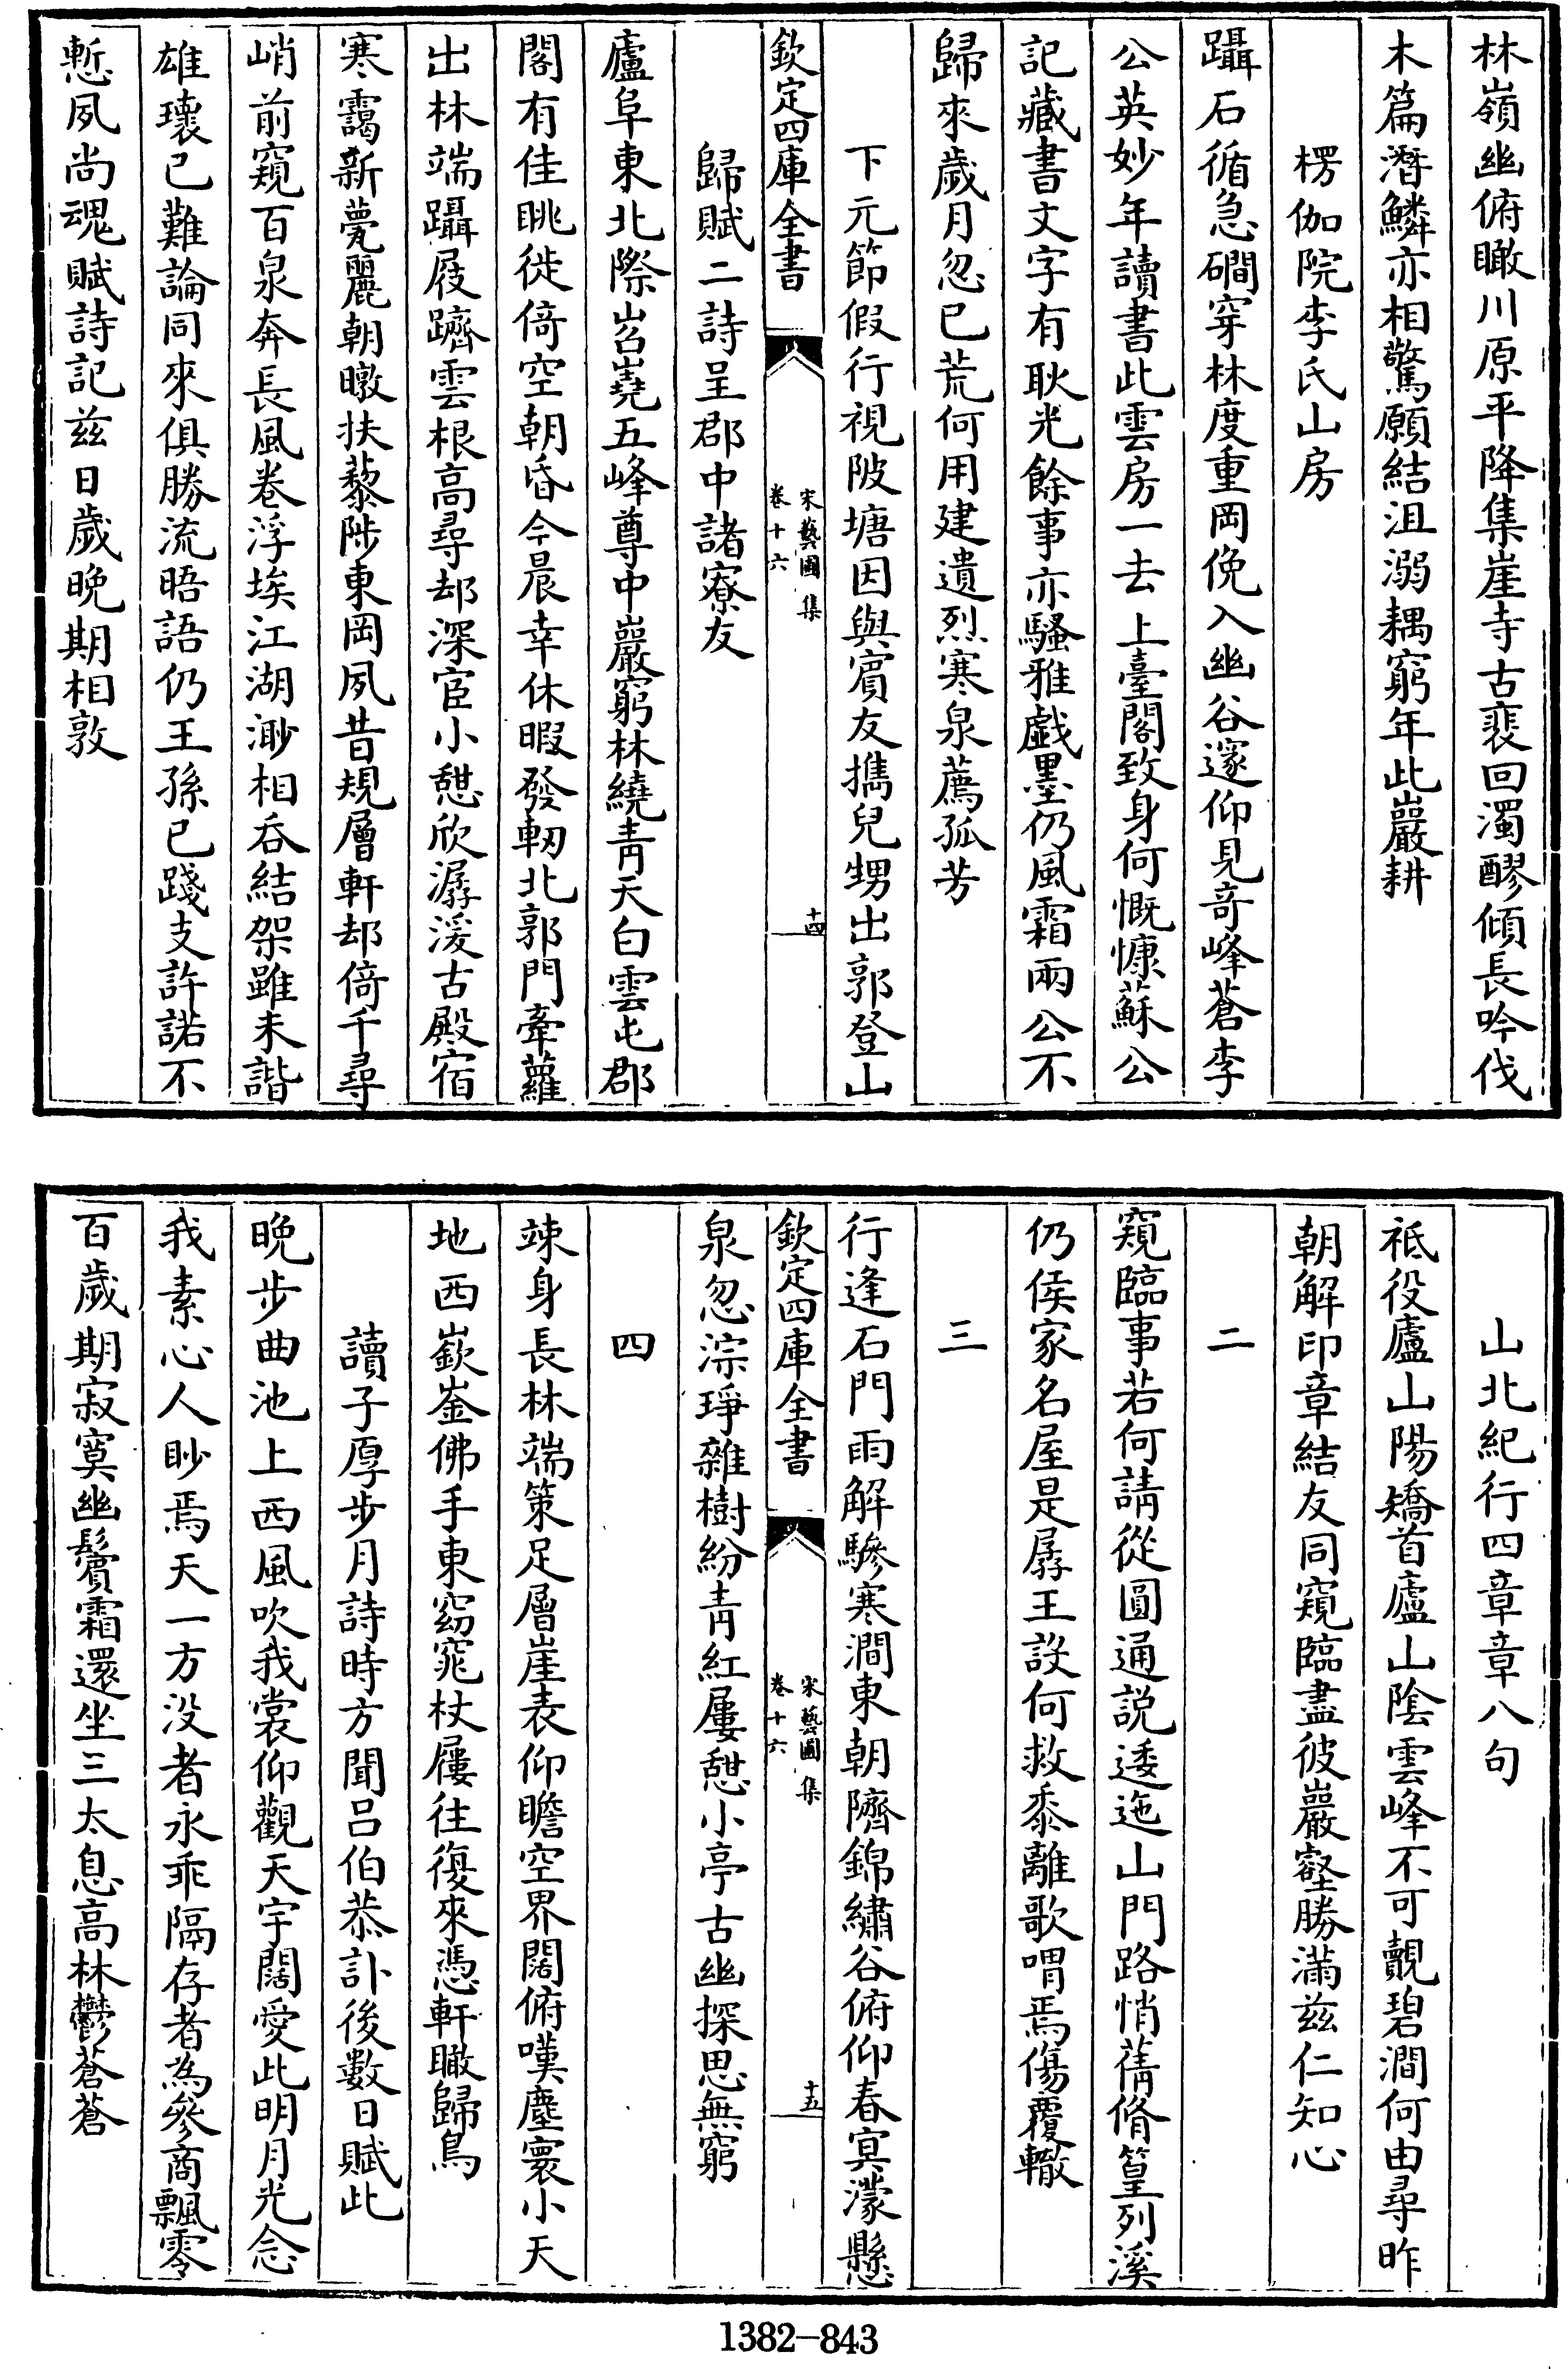 林嶺幽俯瞰川原平降集崖寺古裴回濁醪傾長吟伐
木篇潛鱗亦相驚願結沮溺耦窮年此巖耕
楞伽院李氏山房
躡石循急磵穿林度重岡俛入幽谷邃仰見奇峰蒼李
公英妙年讀書此雲房一去上臺閣致身何慨慷蘇公
記藏書文字有耿光餘事亦騷雅戱墨仍風霜兩公不
歸來歲月忽已荒何用建遺烈寒泉薦孤芳
下元節假行視陂塘因與賓友攜兒甥出郭登山
欽定四庫全書
宋藝圃集
卷十六
十四
歸賦二詩呈郡中諸寮友
廬阜東北際岧嶤五峰尊中巖窮林繞青天白雲屯郡
閣有佳眺徙倚空朝昏今晨幸休暇發軔北郭門牽蘿
出林端躡屐躋雲根高尋却深宦小憇欣潺湲古殿宿
寒靄新甍麗朝暾扶藜陟東岡夙昔規層軒却倚千尋
峭前窺百泉奔長風卷浮埃江湖渺相吞結架雖未諧
雄瓌已難論同來俱勝流晤語仍王孫已踐支許諾不
慙夙尚魂賦詩記兹日歲晩期相敦
山北紀行四章章八句
祗役廬山陽矯首廬山陰雲峰不可覿碧澗何由尋昨
朝解印章結友同窺臨盡彼巖壑勝滿兹仁知心
二
窺臨事若何請從圓通説逶迤山門路悄蒨脩篁列溪
仍侯家名屋是孱王設何救黍離歌喟焉傷覆轍
三
行逢石門雨解驂寒澗東朝隮錦繡谷俯仰春㝠濛懸
欽定四庫全書
宋藝圃集
卷十六
十五
泉忽淙琤雜樹紛青紅屢憇小亭古幽探思無窮
四
竦身長林端策足層崖表仰瞻空界闊俯嘆塵寰小天
地西嶔崟佛手東窈窕杖屨往復來憑軒瞰歸鳥
讀子厚步月詩時方聞吕伯恭訃後數日賦此
晩步曲池上西風吹我裳仰觀天宇闊愛此明月光念
我素心人眇焉天一方没者永乖隔存者為參商飄零
百歲期寂寞幽鬢霜還坐三太息高林鬱蒼蒼
1382-843